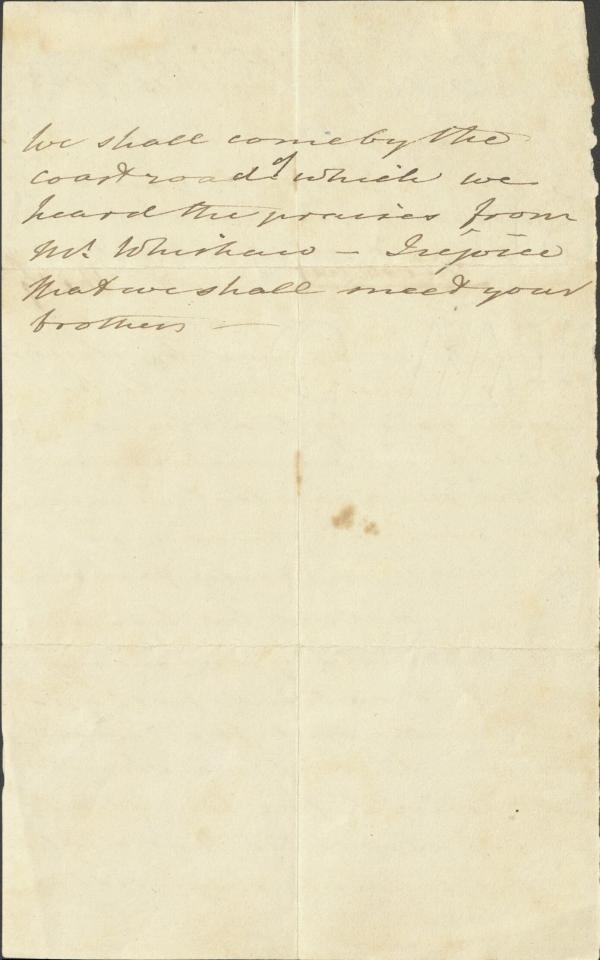 We shall come by the
coast road of which we
heard the praises from
Mr. Whishaw – I rejoice
that we shall meet your
brothers –